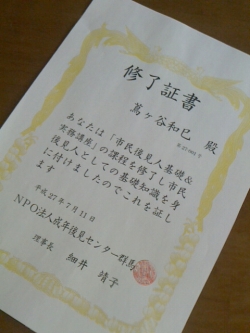 修了証書
蔦ヶ谷和巳 殿
あなたは「市民後見人基礎&
実務講座」の課程を修了し市民
後見人としての基礎知識を身
に付けましたのでこれを証し
ます
平成27年7月11日
NPO法人成年後見センター群馬
理事長 細井 靖子